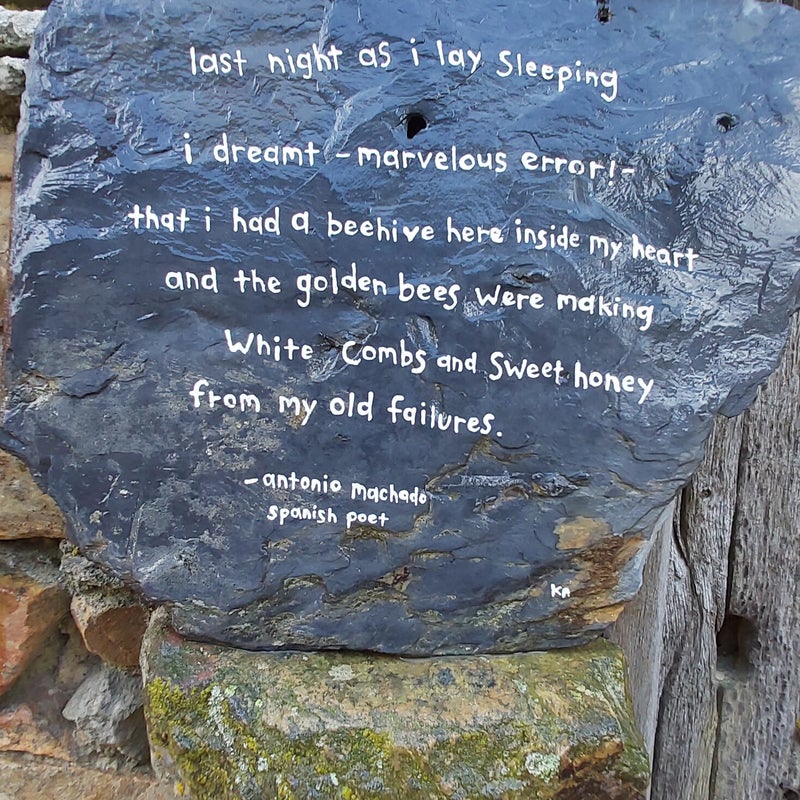 last night as i lay sleeping
i dreamt - marvelous error!-
that i had a beehive here inside my heart
and the golden bees were making
white combs and sweet honey
from my old failures.
- antonio machado
spanish poet